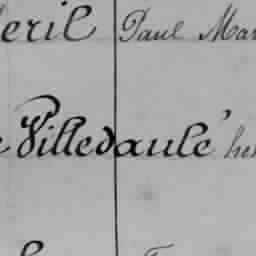 eril Paul Mar
e Villedaulé hen